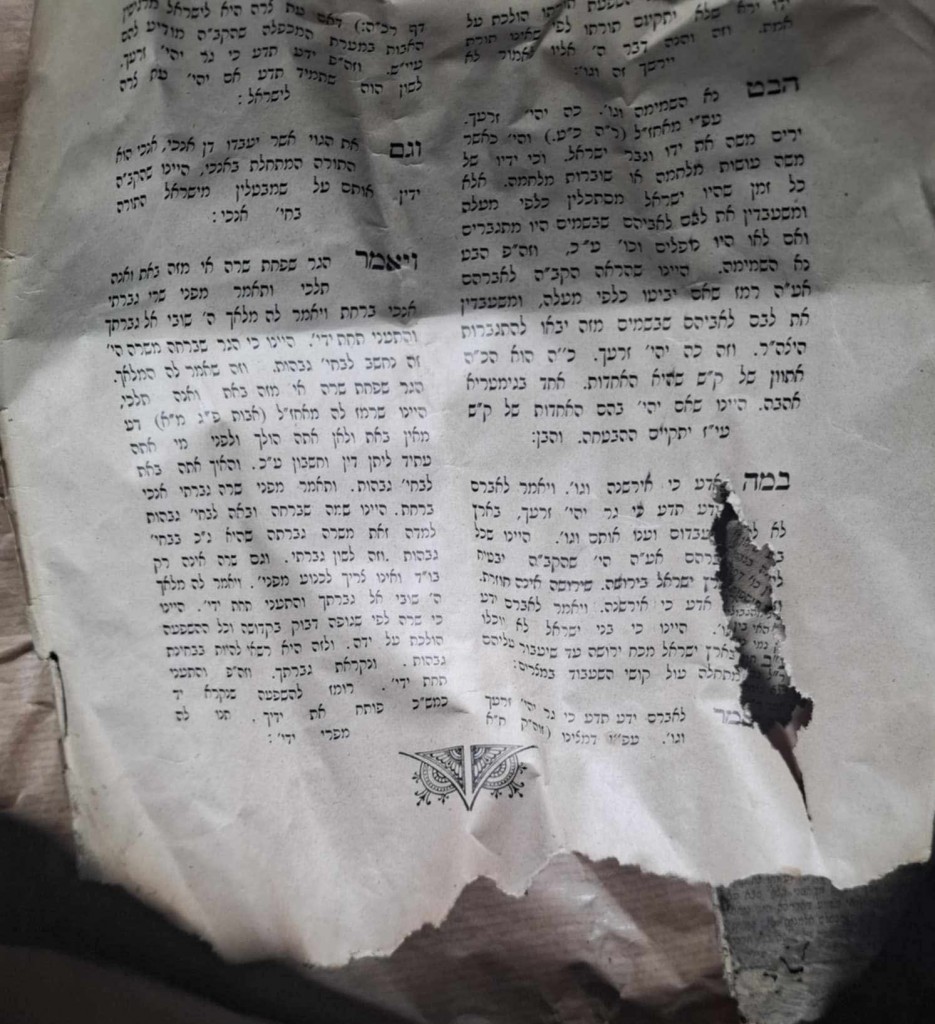 הולכת על
ידו ירא שלא יתקיים תורתו לפי שאינו תורת
אמת. וזה והנה דבר ה' אליו לאמור לא
יירשך זה וגו':
הבט נא השמימה וגו'. כה יהי' זרעך.
עפ"י מאחז"ל (ר"ה כ"ט.) והי' כאשר
ירים משה את ידו וגבר ישראל. וכי ידיו של
משה עושות מלחמה או שוברות מלחמה. אלא
כל זמן שהיו ישראל מסתכלין כלפי מעלה
ומשעבדין את לבם לאביהם שבשמים היו מתגברים
ואם לאו היו נופלים וכו' ע"כ, וזה"פ הבט
נא השמימה. היינו שהראה הקב"ה לאברהם
אע"ה רמז שאם יביטו כלפי מעלה, ומשעבדין
את לבם לאביהם שבשמים מזה יבאו להתגברות
היצה"ר. וזה כה יהי' זרעך. כ"ה הוא הכ"ה
אתוון של ק"ש שהיא האחדות. אחד בגימטריא
אהבה. היינו שאם יהי' בהם האחדות של ק"ש
עי"ז יתקיים ההבטחה. והבן:
במה אדע כי אירשנה וגו'. ויאמר לאברם
ידע תדע כי גר יהי' זרעך, בארץ
לא ועבדום וענו אותם וגו'. היינו שכל
אברהם אע"ה הי' שהקב"ה יבטיח
ארץ ישראל בירושה. שירושה אינה חוזרת.
אדע כי אירשנה. ויאמר לאברם ידע
וגו'. היינו כי בני ישראל לא יזכלו
בארץ ישראל מכח ירושה עד שיעבור עליהם
מתחלה עול קושי השעבוד במצרים:
לאברם ידע תדע כי גר יהי' זרעך
וגו'. עפ"י דמצינו (זוה"ק ח"א
דף רכ"ה:) דאם עת צרה היא לישראל
האבות במערת המכפלה שהקב"ה מודיע להם
עיי"ש. וזה"פ ידע תדע כי גר יהי' זרעך.
לשון הוה שתמיד תדע אם יהי' עת צרה
לישראל:
וגם את הגוי אשר יעבדו דן אנכי, אנכי הוא
התורה המתחלת באנכי, היינו שהקב"ה
ידין אותם על שמבטלין מישראל התורה
בחי' אנכי:
ויאמר הגר שפחת שרה אי מזה באת ואנה
תלכי ותאמר מפני שרי גברתי
אנכי ברחת ויאמר לה מלאך ה' שובי אל גברתך
והתעני תחת ידי'. היינו כי הגר שברחה משרה הי'
זה נחשב לבחי' גבהות. וזה שאמר לה המלאך.
הגר שפחת שרה אי מזה באת ואנה תלכי,
היינו שרמז לה מאחז"ל (אבות פ"ג מ"א) דע
מאין באת ולאן אתה הולך ולפני מי אתה
עתיד ליתן דין וחשבון ע"כ. והאיך אתה באת
לבחי' גבהות. ותאמר מפני שרה גברתי אנכי
ברחת. היינו שמה שברחה ובאה לבחי' גבהות
למדה זאת משרה גברתה שהיא ג"כ בבחי'
גבהות. וזה לשון גברתי. וגם שרה אינה רק
בו"ד ואינו צריך לכנוע מפני'. ויאמר לה מלאך
ה' שובי אל גברתך והתעני תחת ידי'. היינו
כי שרה לפי שגופה דבוק בקדושה וכל ההשפעה
הולכת על ידה. ולזה היא רשאי להיות בבחינת
גבהות. ונקראת גברתך. וזה"פ והתעני
תחת ידי'. רומז להשפעה שנקרא יד
כמש"כ פותח את ידיך. תנו לה
מפרי ידי':